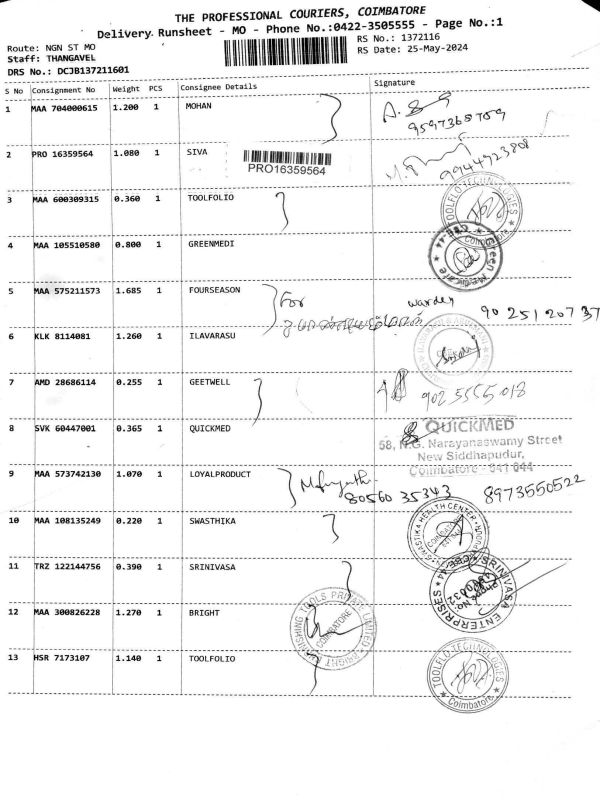 THE PROFESSIONAL COURIERS, COIMBATORE
Delivery Runsheet - MO - Phone No.:0422-3505555 - Page No.:1
Route: NGN ST MO
RS No.: 1372116
Staff: THANGAVEL
RS Date: 25-May-2024
DRS No.: DCJB137211601
S No Consignment No Weight PCS Consignee Details Signature
1 MAA 704000615 1.200 1 MOHAN
9597368759
2 PRO 16359564 1.080 1 SIVA
PRO16359564
9944923808
3 MAA 600309315 0.360 1 TOOLFOLIO
TOOLFLO TECHNOLOGIES
Coimbatore
4 MAA 105510580 0.800 1 GREENMEDI
Green Medicare
CBE-44
5 MAA 575211573 1.685 1 FOURSEASON
For warden 90 251 20737
6 KLK 8114081 1.260 1 ILAVARASU
7 AMD 28686114 0.255 1 GEETWELL
902 5555 018
8 SVK 60447001 0.365 1 QUICKMED
QUICKMED
58, N.G. Narayanaswamy Street
New Siddhapudur,
Coimbatore - 641 044
9 MAA 573742130 1.070 1 LOYALPRODUCT
80560 35343 8973550522
10 MAA 108135249 0.220 1 SWASTHIKA
SWASTIKA HEALTH CENTER
11 TRZ 122144756 0.390 1 SRINIVASA
SRINIVASA ENTERPRISES
Phone No.
12 MAA 300826228 1.270 1 BRIGHT
BRIGHT FINISHING TOOLS PRIVATE LIMITED
COIMBATORE
13 HSR 7173107 1.140 1 TOOLFOLIO
TOOLFLO TECHNOLOGIES
Coimbatore